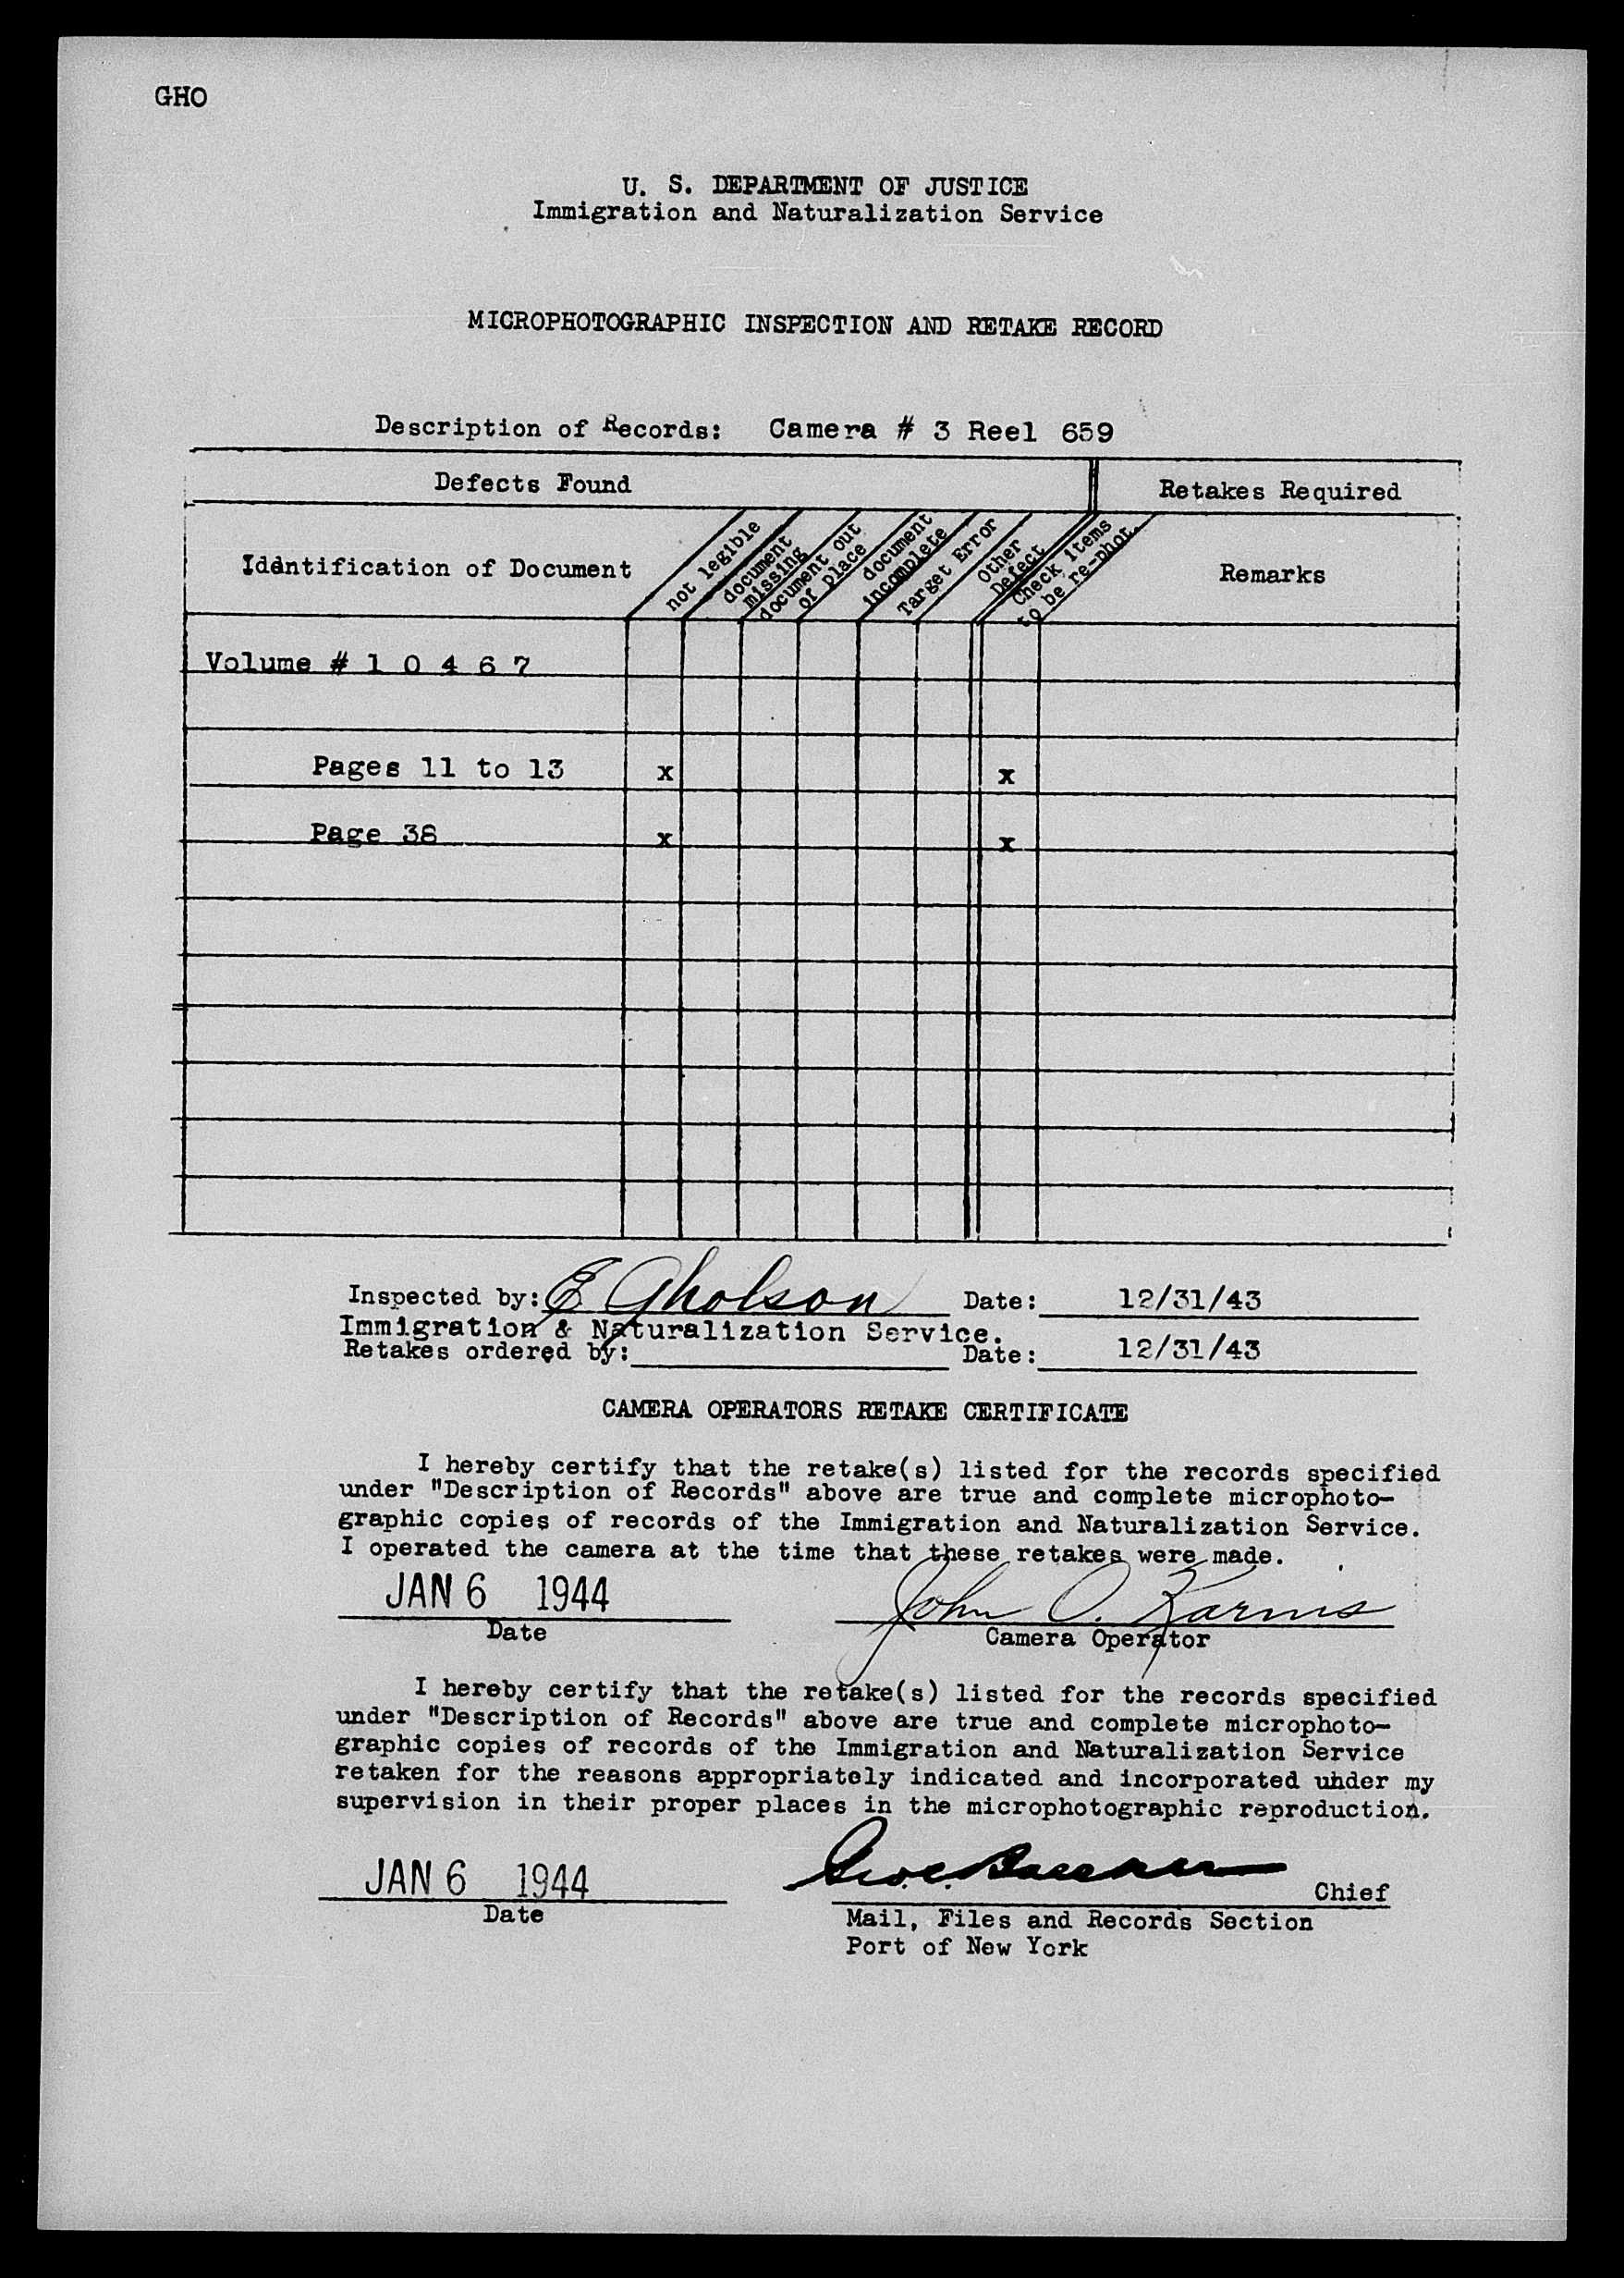 GHO
U. S. DEPARTMENT OF JUSTICE
Immigration and Naturalization Service
MICROPHOTOGRAPHIC INSPECTION AND RETAKE RECORD
Description of Records: Camera # 3 Reel 659
Defects Found
Retakes Required
Identification of Document
not legible
document
missing
document out
of place
document
incomplete
Target Error
Other
Defect
Check items
to be re-phot.
Remarks
Volume # 1 0 4 6 7
Pages 11 to 13 x x
Page 38 x x
Inspected by: E Gholson Date: 12/31/43
Immigration & Naturalization Service.
Retakes ordered by: Date: 12/31/43
CAMERA OPERATORS RETAKE CERTIFICATE
I hereby certify that the retake(s) listed for the records specified
under "Description of Records" above are true and complete microphoto-
graphic copies of records of the Immigration and Naturalization Service.
I operated the camera at the time that these retakes were made.
JAN 6 1944 John O. Karms
Date Camera Operator
I hereby certify that the retake(s) listed for the records specified
under "Description of Records" above are true and complete microphoto-
graphic copies of records of the Immigration and Naturalization Service
retaken for the reasons appropriately indicated and incorporated under my
supervision in their proper places in the microphotographic reproduction.
JAN 6 1944 Chief
Date Mail, Files and Records Section
Port of New York